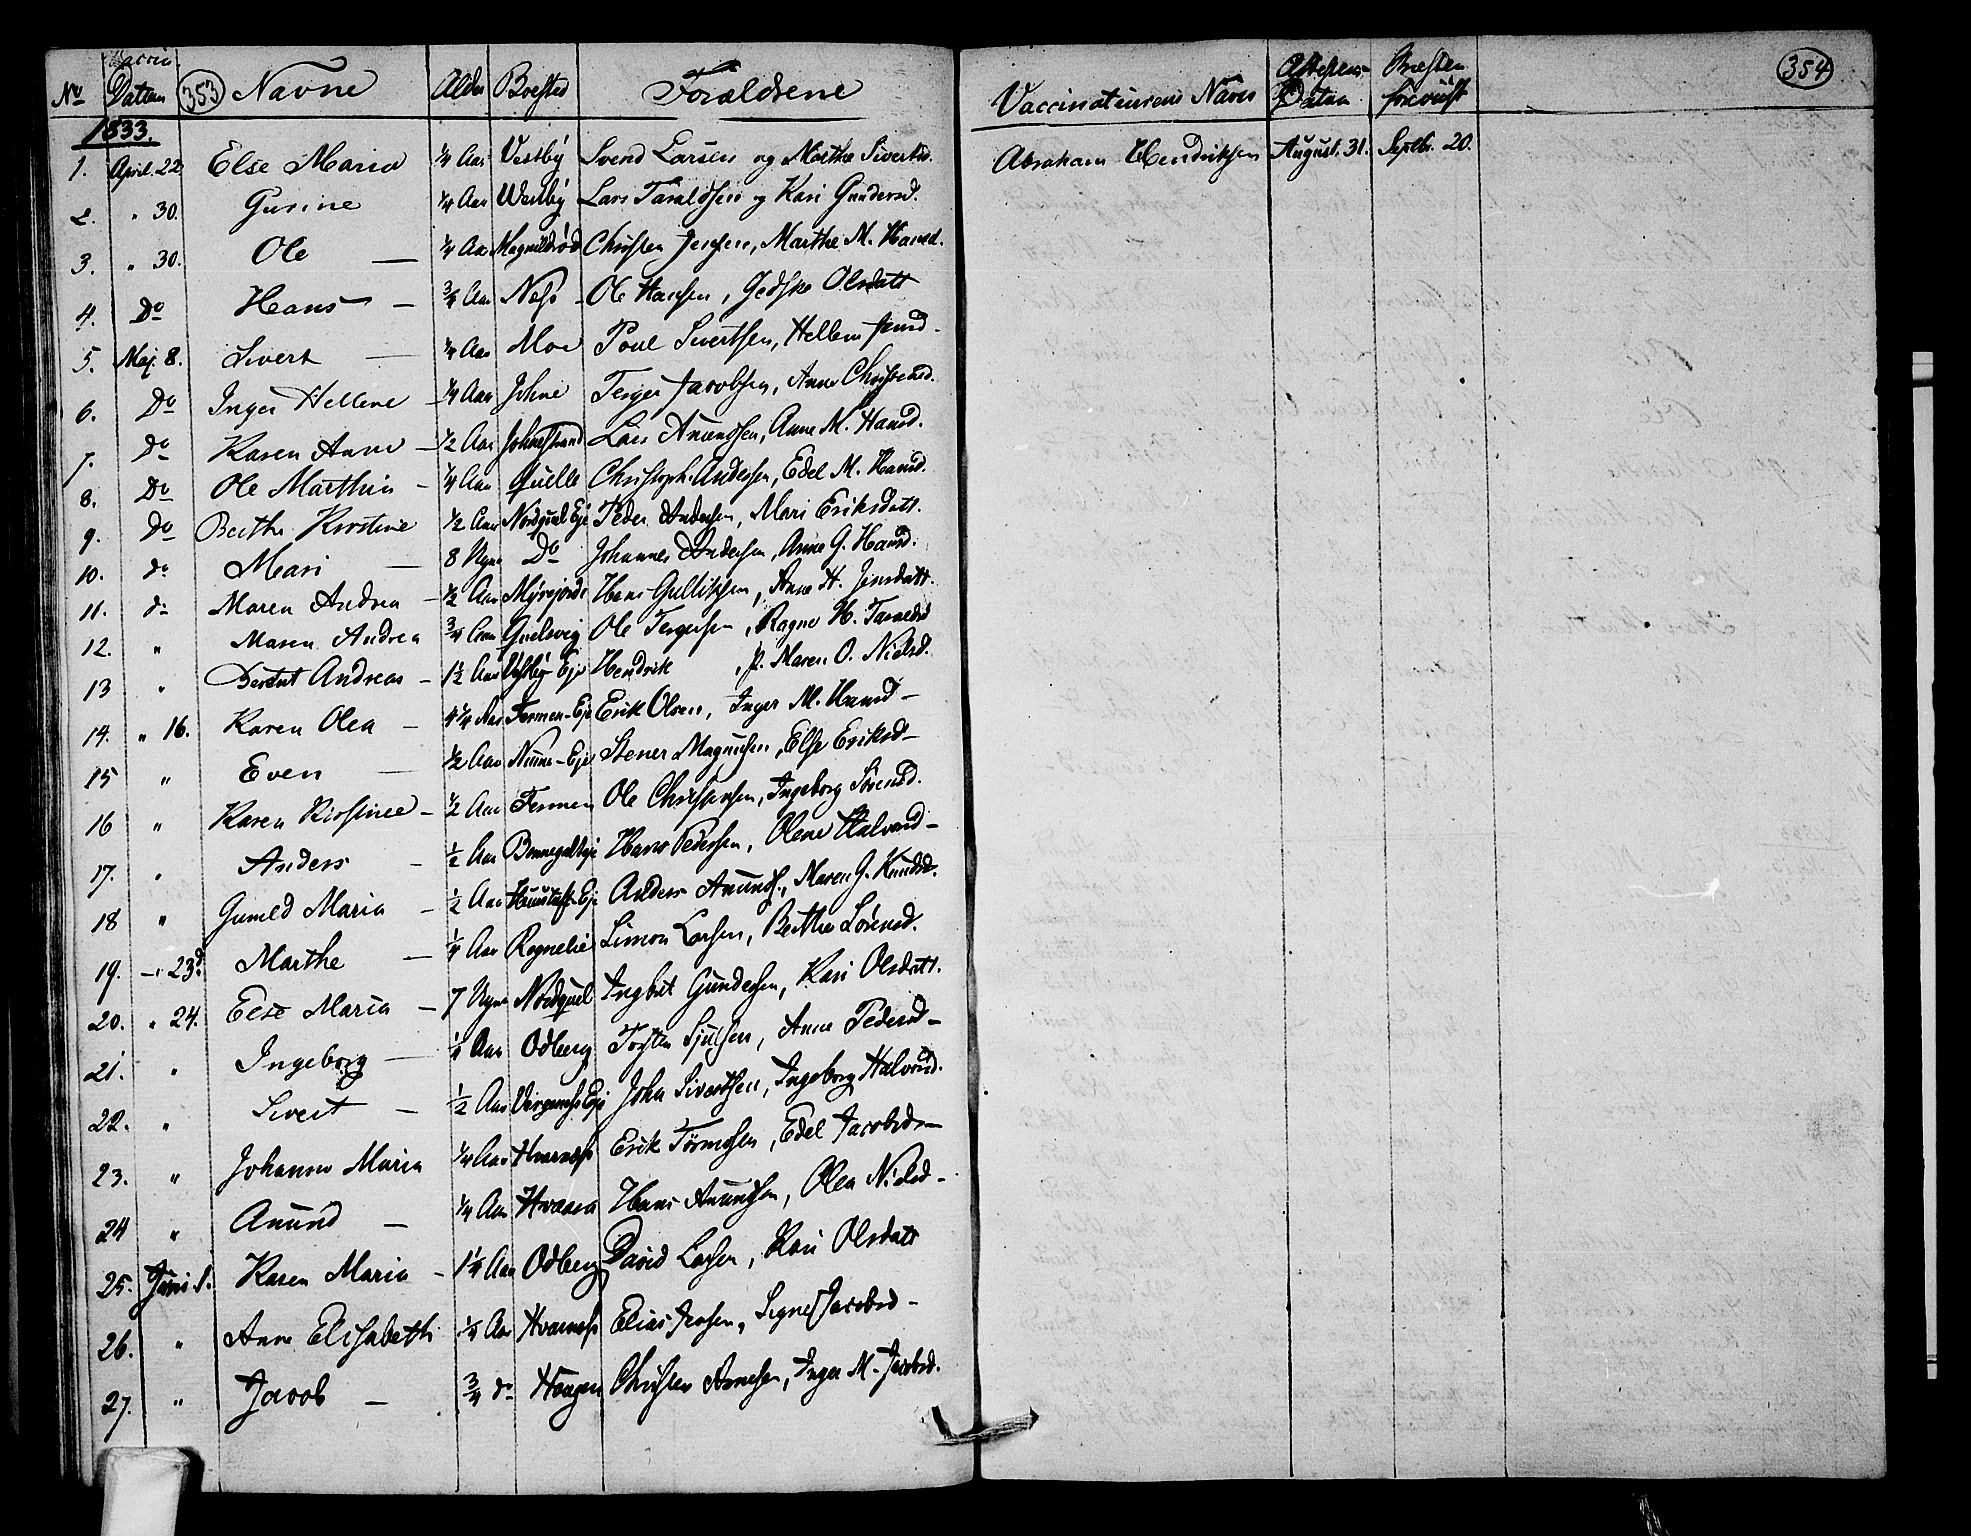 No Vaccin. Datum 353 Navne Alder Bosted Forældrene Vaccinateurens Navn Attestens Datum Præsten foreviist 354
1833.
1. April 22 Else Maria ¼ Aar Vestby Svend Larsen og Marthe Sivertsd. Abraham Hendriksen August. 31. Septbr. 20.
2. " 30. Gurine ¼ Aar Westby Lars Taraldsen og Kari Gundersd.
3. " 30. Ole — ¼ Aar Christen Jensen, Marthe M. Hansd.
4. Do Hans — ¾ Aar Næss Ole Hansen, Gedske Olsdatt
5. Maj. 8. Sivert — ¼ Aar Moe Poul Sivertsen, Hellene
6. Do Inger Hellene — ¼ Aar Johne Terger Jacobsen, Anne Christensd.
7. Do Karen Anne — ½ Aar Lars Anundsen, Anne M. Hansd.
8. Do Ole Marthin — ¼ Aar Quelle Christoph. Andersen, Edel M. Hansd.
9. Do Berthe Kirstine ½ Aar Nordquel Eje Peder Andersen, Mari Eriksdatt.
10. do Mari — 8 Uger Do Johannes Andersen, Anne G. Hansd.
11. do Maren Andrea — ½ Aar Hans Gullichsen, Anne H. Jensdatt.
12. " Maren Andrea ¾ Aar Quelsvig Ole Tergersen, Ragne H. Taraldsd
13 " Andreas — 1½ Aar Vestby Eje Hendrik P. Maren O. Nielsd.
14. " 16. Karen Olea — Aar Fermen-Eje Erik Olsen, Inger M. Hansd —
15 " Even — ½ Aar Eje Stener Magnusen, Else Eriksd —
16 " Karen Kirstine — ½ Aar Fermen Ole Christensen, Ingeborg Sørensd.
17. " Anders — ½ Aar Hans Pedersen, Olene Halvorsd —
18 " Gunild Maria — ½ Aar Eje Anders Anunds., Maren G. Knudsd.
19. — " 23d. Marthe — ¼ Aar Rognelie Simon Larsen, Berthe Sørensd.
20. " 24. Else Maria — 7 Uger Nordquel Ingbret Gundersen, Kari Olsdatt.
21. " Ingeborg — ¼ Aar Odberg Torsten Anne Pedersd —
22. " Sivert — ½ Aar Eje John Sivertsen, Ingeborg Halvorsd.
23. " Johanne Maria ¼ Aar Hvarness Erik Tormosen, Edel Jacobsd —
24 " Anund — ¼ Aar Hvaara Hans Anundsen, Olea Nielsd —
25. Juni 1. Karen Maria — 1¼ Aar Odberg David Larsen, Kari Olsdatt
26. " Anne Elisabeth ¼ Aar Hvarness Elias Jensen, Signe Jacobsd —
27. " Jacob — ¾ do Haagen Christen Arnesen, Inger M. Jacobsd.